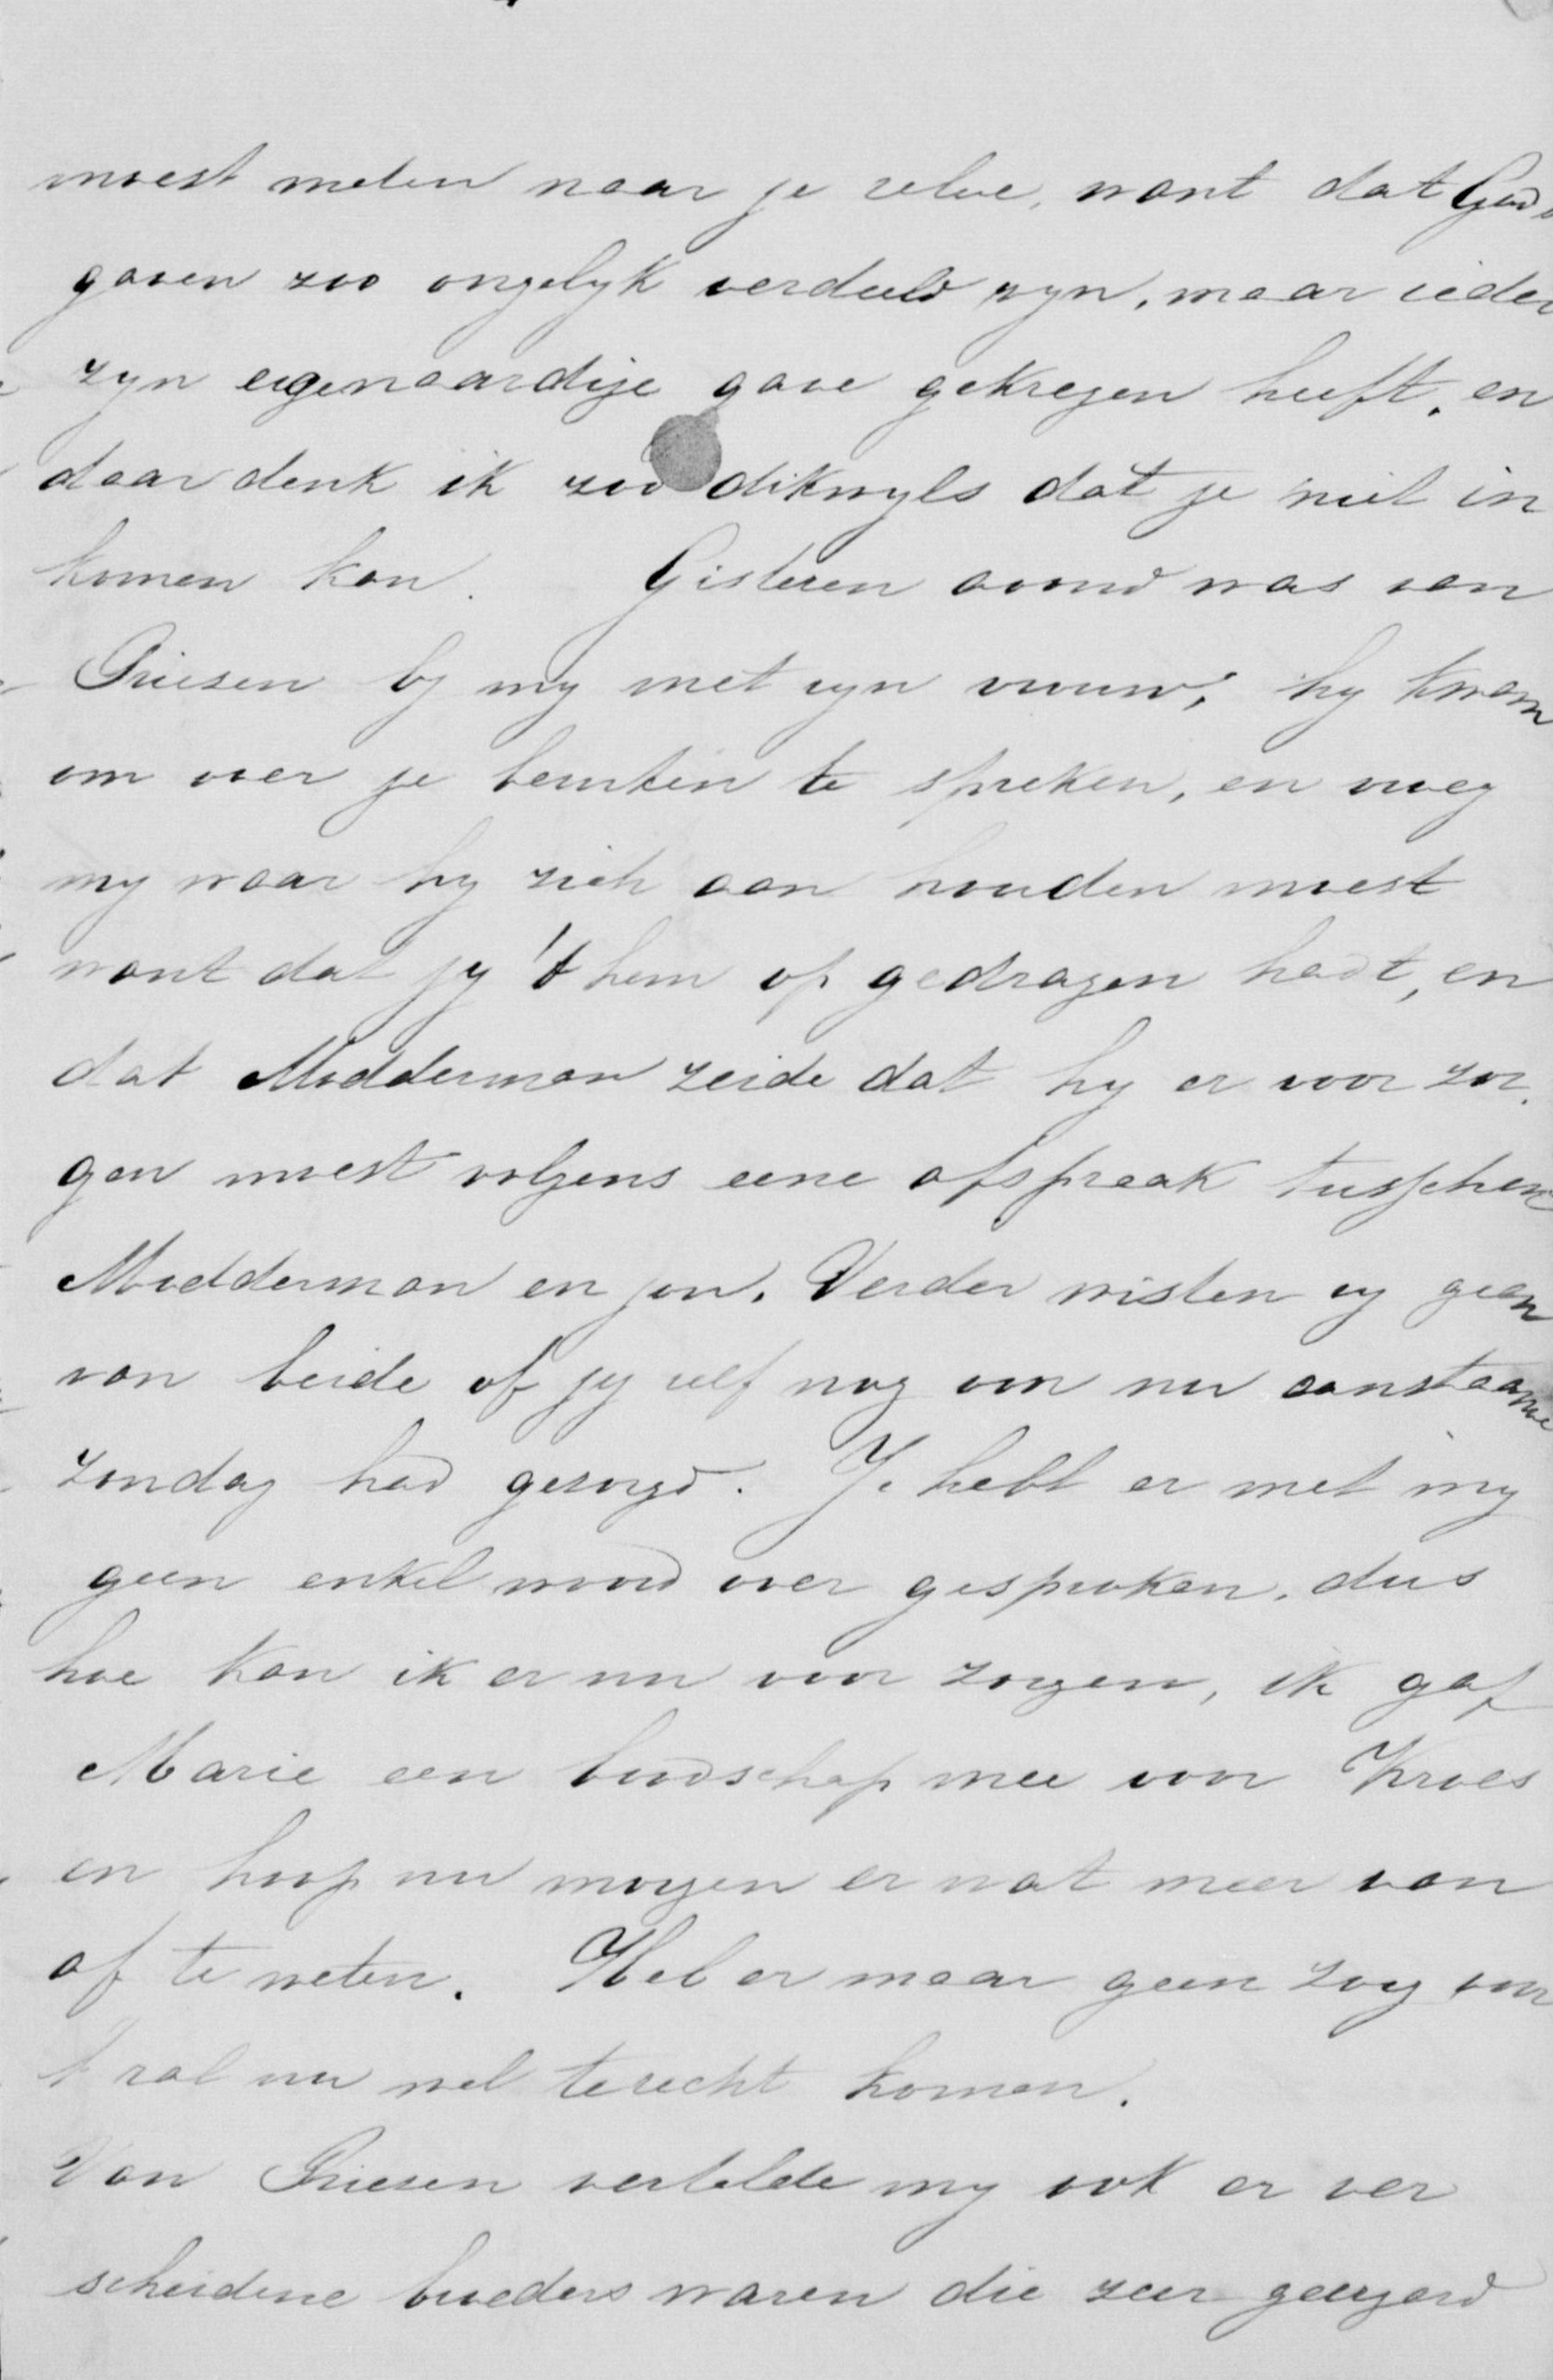 moest meten naar je zelve, want dat Gods
gaven zoo ongelyk verdeeld zyn, maar ieder
zyn eigenaardige gave gekregen heeft, en
daar denk ik zoo dikwyls dat je niet in
komen kan. Gisteren avond was van
Griesen by my met zyn vrouw, hy kwam
om over je beurten te spreken, en vroeg
my waar hy zich aan houden moest
want dat jy 't hem op gedragen hadt, en
dat Modderman zeide dat hy er voor zor
gen moest volgens eene afspraak tusschen
Modderman en jou. Verder wisten zy geen
van beide of jy zelf nog voor nu aanstaande
zondag had gezorgd. Je hebt er met my
geen enkel woord over gesproken, dus
hoe kan ik er nu voor zorgen, ik gaf
Marie een boodschap mee voor Kroes
en hoop nu morgen er wat meer van
af te weten. Heb er maar geen zorg over
't zal nu wel terecht komen.
Van Griesen vertelde my ook er ver
scheidene broeders waren die zeer geergerd